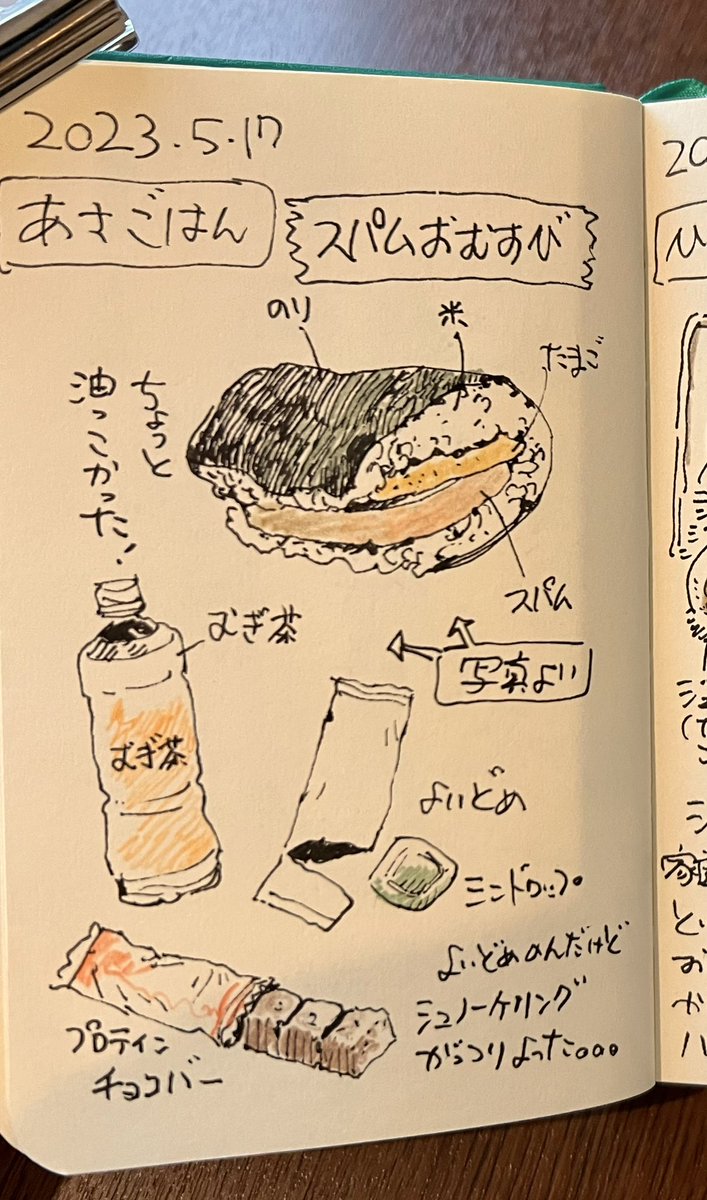 2023.5.17
あさごはん
スパムおむすび
のり
米
たまご
ちょっと
油っこかった!
スパム
むぎ茶
写真よい
むぎ茶
よいどめ
ミンドロップ
よいどめのんだけど
シュノーケリング
がっつりよった。。。
プロテイン
チョコバー
20
ひ
シ
家庭
と
お
か
ハ